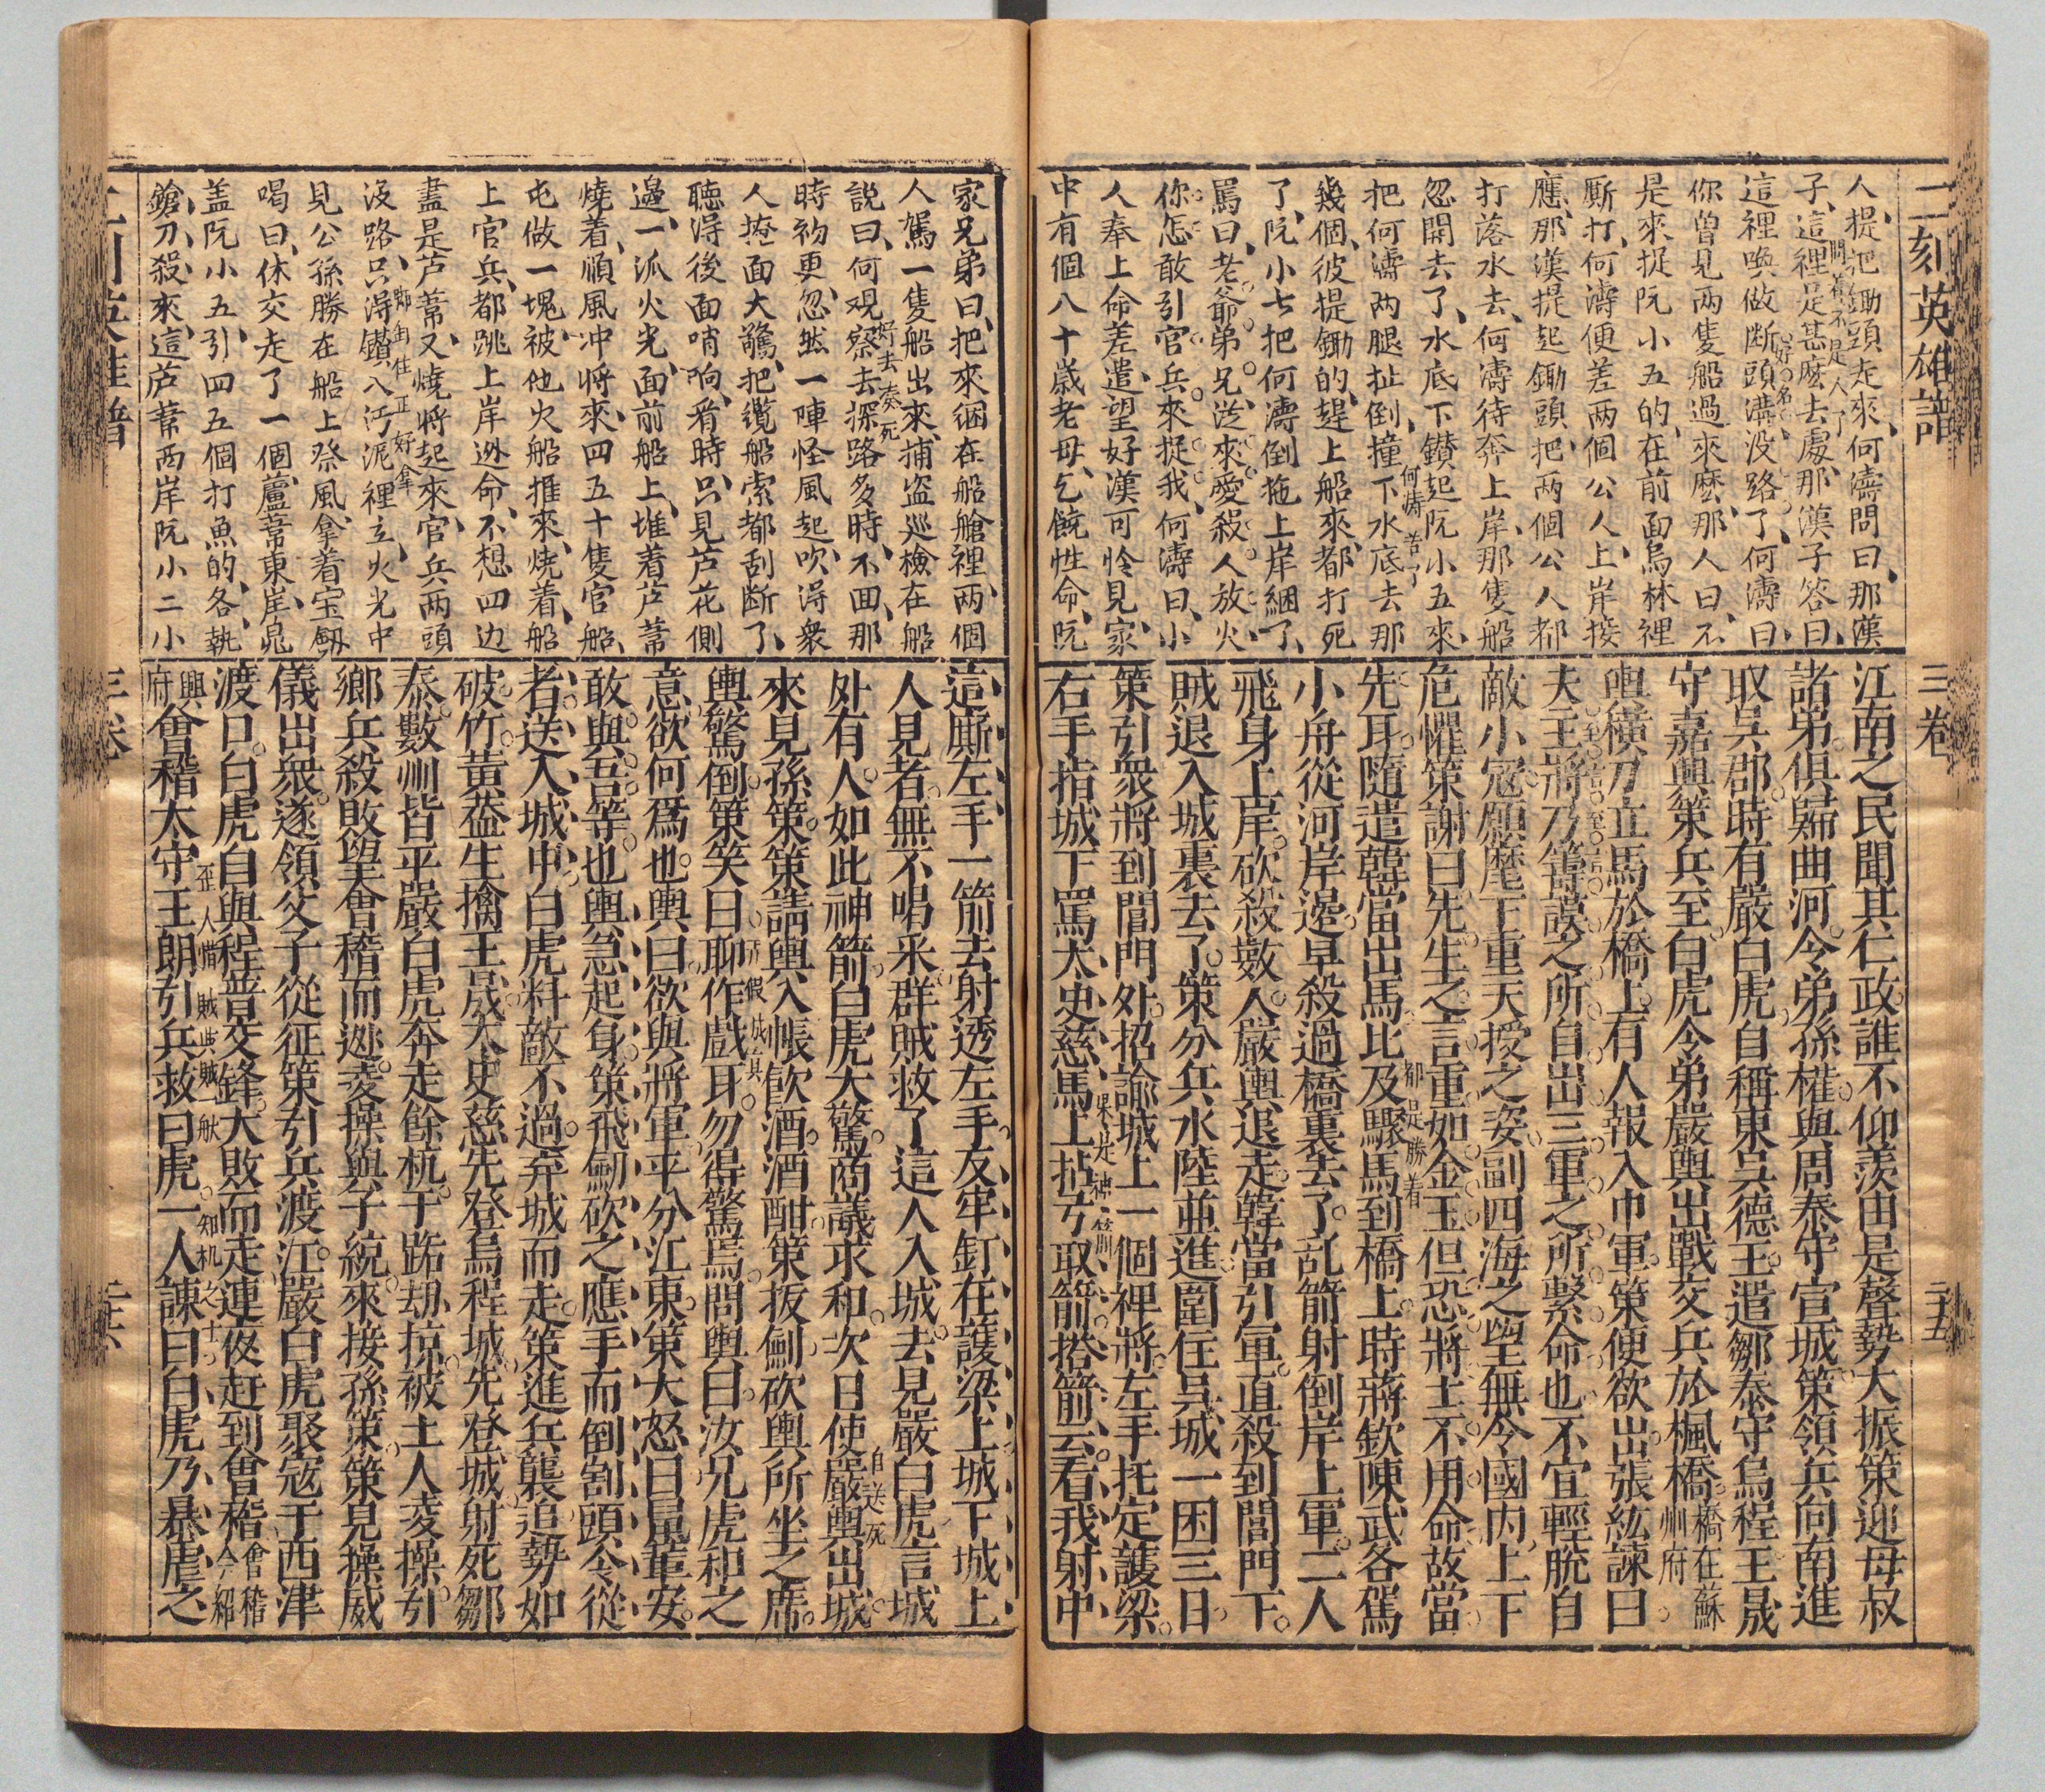 二刻英雄譜
三卷
二十五
人提把鋤頭走來何濤問曰那漢
子這裡是甚麽去處那漢子答曰
這裡喚做断頭溝没路了何濤曰
你曾見两隻船過來麽那人曰不
是來捉阮小五的在前面烏林裡
厮打何濤便差两個公人上岸接
應那漢提起鋤頭把两個公人都
打落水去何濤待奔上岸那隻船
忽開去了水底下鑚起阮小五來
把何濤两腿扯倒撞下水底去那
幾個彼提鋤的趕上船來都打死
了阮小七把何濤倒拖上岸綑了
罵曰老爺弟兄從來愛殺人放火
你怎敢引官兵來捉我何濤曰小
人奉上命差遣望好漢可怜見家
中有個八十歲老母乞饒性命阮
問着不是人了
好名
何濤苦了
江南之民聞其仁政誰不仰羨由是聲勢大振策迎母叔
諸弟俱歸曲河令弟孫權與周泰守宣城策領兵向南進
取吳郡時有嚴白虎自稱東吳德王遣鄒泰守烏程王晟
守嘉興策兵至白虎令弟嚴輿出戰交兵於楓橋橋在蘇州府
輿橫刀立馬於橋上有人報入中軍策便欲出張紘諫曰
夫主將乃籌謨之所自出三軍之所繫命也不宜輕脫自
敵小寇願麾下重天授之姿副四海之望無令國內上下
危懼策謝曰先生之言重如金玉但恐將士不用命故當
先耳隨遣韓當出馬比及驟馬到橋上時蔣欽陳武各駕
小舟從河岸邊早殺過橋裏去了乱箭射倒岸上軍二人
飛身上岸砍殺數人嚴輿退走韓當引軍直殺到閶門下
賊退入城裏去了策分兵水陸並進圍住吳城一困三日
策引衆將到閶門外招諭城上一個裨將左手托定護梁
右手指城下罵太史慈馬上拈弓取箭搭箭云看我射中
至言至言
都是勝着
果是神箭
家兄弟曰把來綑在船艙裡两個
人駕一隻船出來捕盗巡檢在船
説曰何观察去探路多時不囬那
時初更忽然一陣怪風起吹得衆
人掩面大驚把纜船索都刮断了
聽得後面哨响看時只見芦花側
邉一派火光面前船上堆着芦葦
燒着順風冲将來四五十隻官船
屯做一塊被他火船推來燒着船
上官兵都跳上岸逃命不想四边
盡是芦葦又燒将起來官兵两頭
没路只得鑚入汚泥裡立火光中
見公孫勝在船上祭風拿着宝劔
喝曰休交走了一個蘆葦東岸晁
盖阮小五引四五個打魚的各執
鎗刀殺來這芦葦两岸阮小二小
好去奏死
跡缶住正好拿
這厮左手一箭去射透左手反牢釘在護梁上城下城上
人見者無不唱采群賊救了這人入城去見嚴白虎言城
外有人如此神箭白虎大驚商議求和次日使嚴輿出城
來見孫策策請輿入帳飮酒酒酣策拔劍砍輿所坐之席
輿驚倒策笑曰聊作戲耳勿得驚焉問輿曰汝兄虎和之
意欲何爲也輿曰欲與將軍平分江東策大怒曰鼠輩安
敢與吾等也輿急起身策飛劔砍之應手而倒割頭令從
者送入城中白虎料敵不過弃城而走策進兵襲追勢如
破竹黃盖生擒王晟太史慈先登烏程城先登城射死鄒
泰數州皆平嚴白虎奔走餘杭于路劫掠被土人凌操引
鄉兵殺敗望會稽而逃凌操與子統來接孫策策見操威
儀出衆遂領父子從征策引兵渡江嚴白虎聚寇于西津
渡口白虎自與程普交鋒大敗而走連夜赶到會稽會稽今紹
興府會稽太守王朗引兵救曰虎一人諫曰白虎乃暴虐之
自送死
弄假成真
歪人惜賊與賊一般
知机之士
二刻英雄譜
三卷
二十六